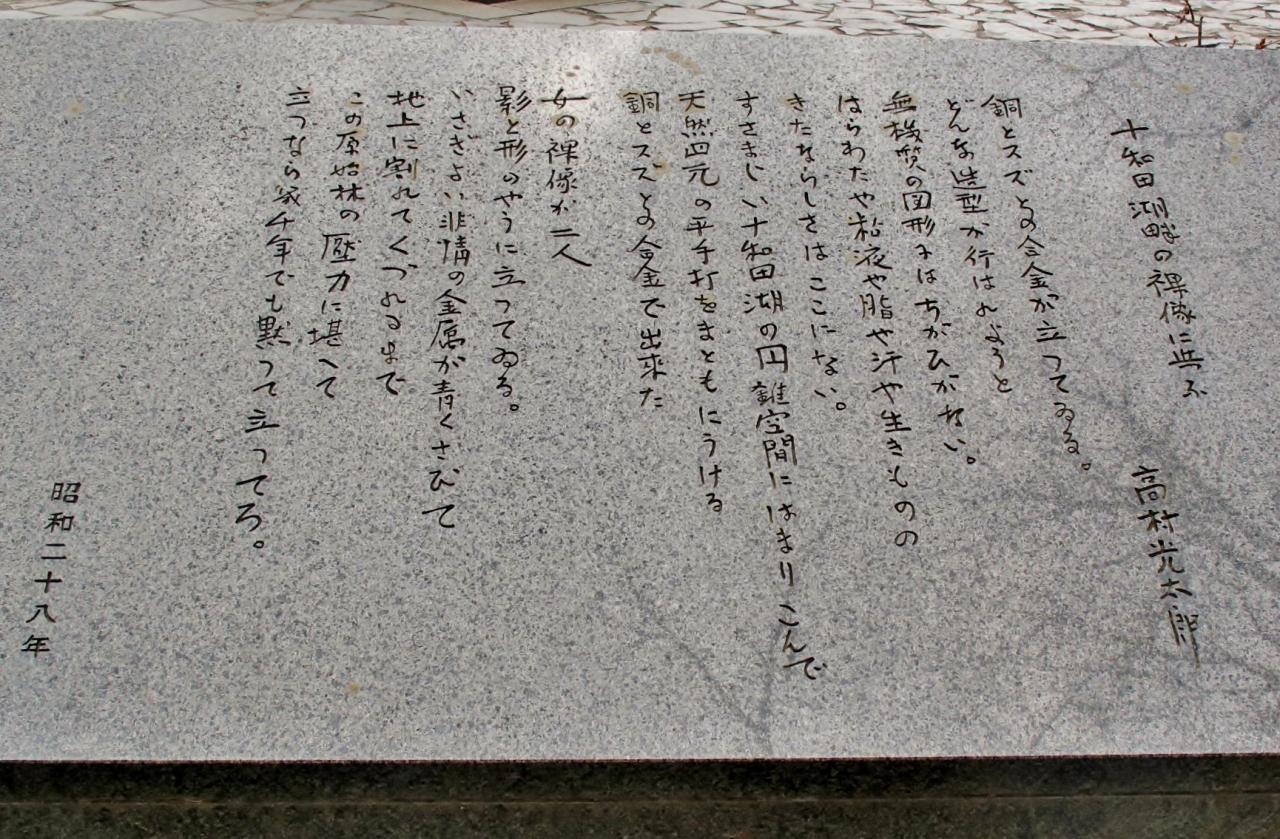 十和田湖畔の裸像に与ふ
高村光太郎
銅とスズとの合金が立つてゐる。
どんな造型が行はれようと
無機質の図形にはちがひがない。
はらわたや粘液や脂や汗や生きものの
きたならしさはここにない。
すさまじい十和田湖の円錐空間にはまりこんで
天然四元の平手打をまともにうける
銅とスズとの合金で出来た
女の裸像が二人
影と形のやうに立つてゐる。
いさぎよい非情の金属が青くさびて
地上に割れてくづれるまで
この原始林の圧力に堪へて
立つなら幾千年でも黙つて立つてろ。
昭和二十八年